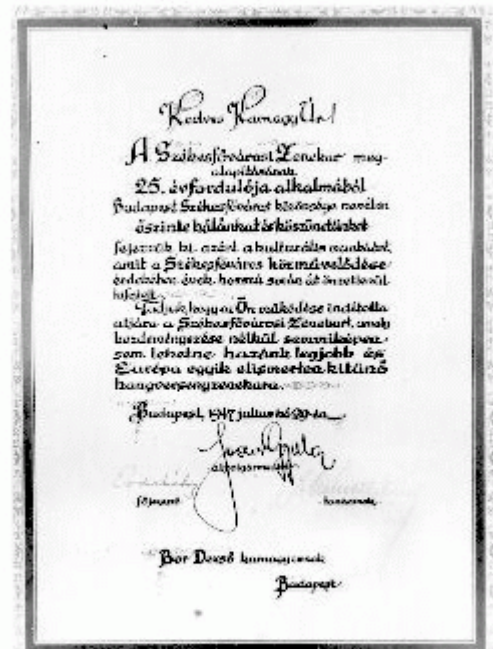 Kedves Karnagy Úr!
A Székesfővárosi Zenekar meg-
alapításának
25. évfordulója alkalmából
Budapest Székesfőváros közönsége nevében
őszinte hálánkat és köszönetünket
fejezzük ki azért a kulturális munkáért,
amit a Székesfőváros közművelődése
érdekében évek hosszú során át önzetlenül
kifejtett.
Tudjuk, hogy az Ön működése indította
útjára a Székesfővárosi Zenekart, amely
kezdeményezése nélkül semmiképen
sem lehetne hazánk legjobb és
Európa egyik elismerten kitűnő
hangversenyzenekara.
Budapest, 1947 julius hó 29-én
alpolgármester
főjegyző tanácsnok
Bor Dezső karnagy urnak
Budapest